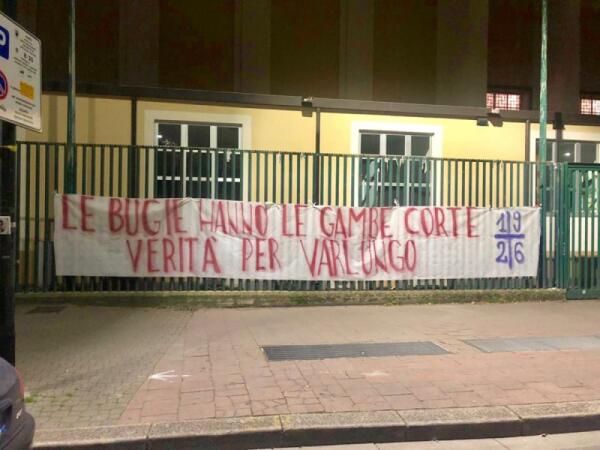 LE BUGIE HANNO LE GAMBE CORTE
VERITÀ PER VARLUNGO
19
26
P